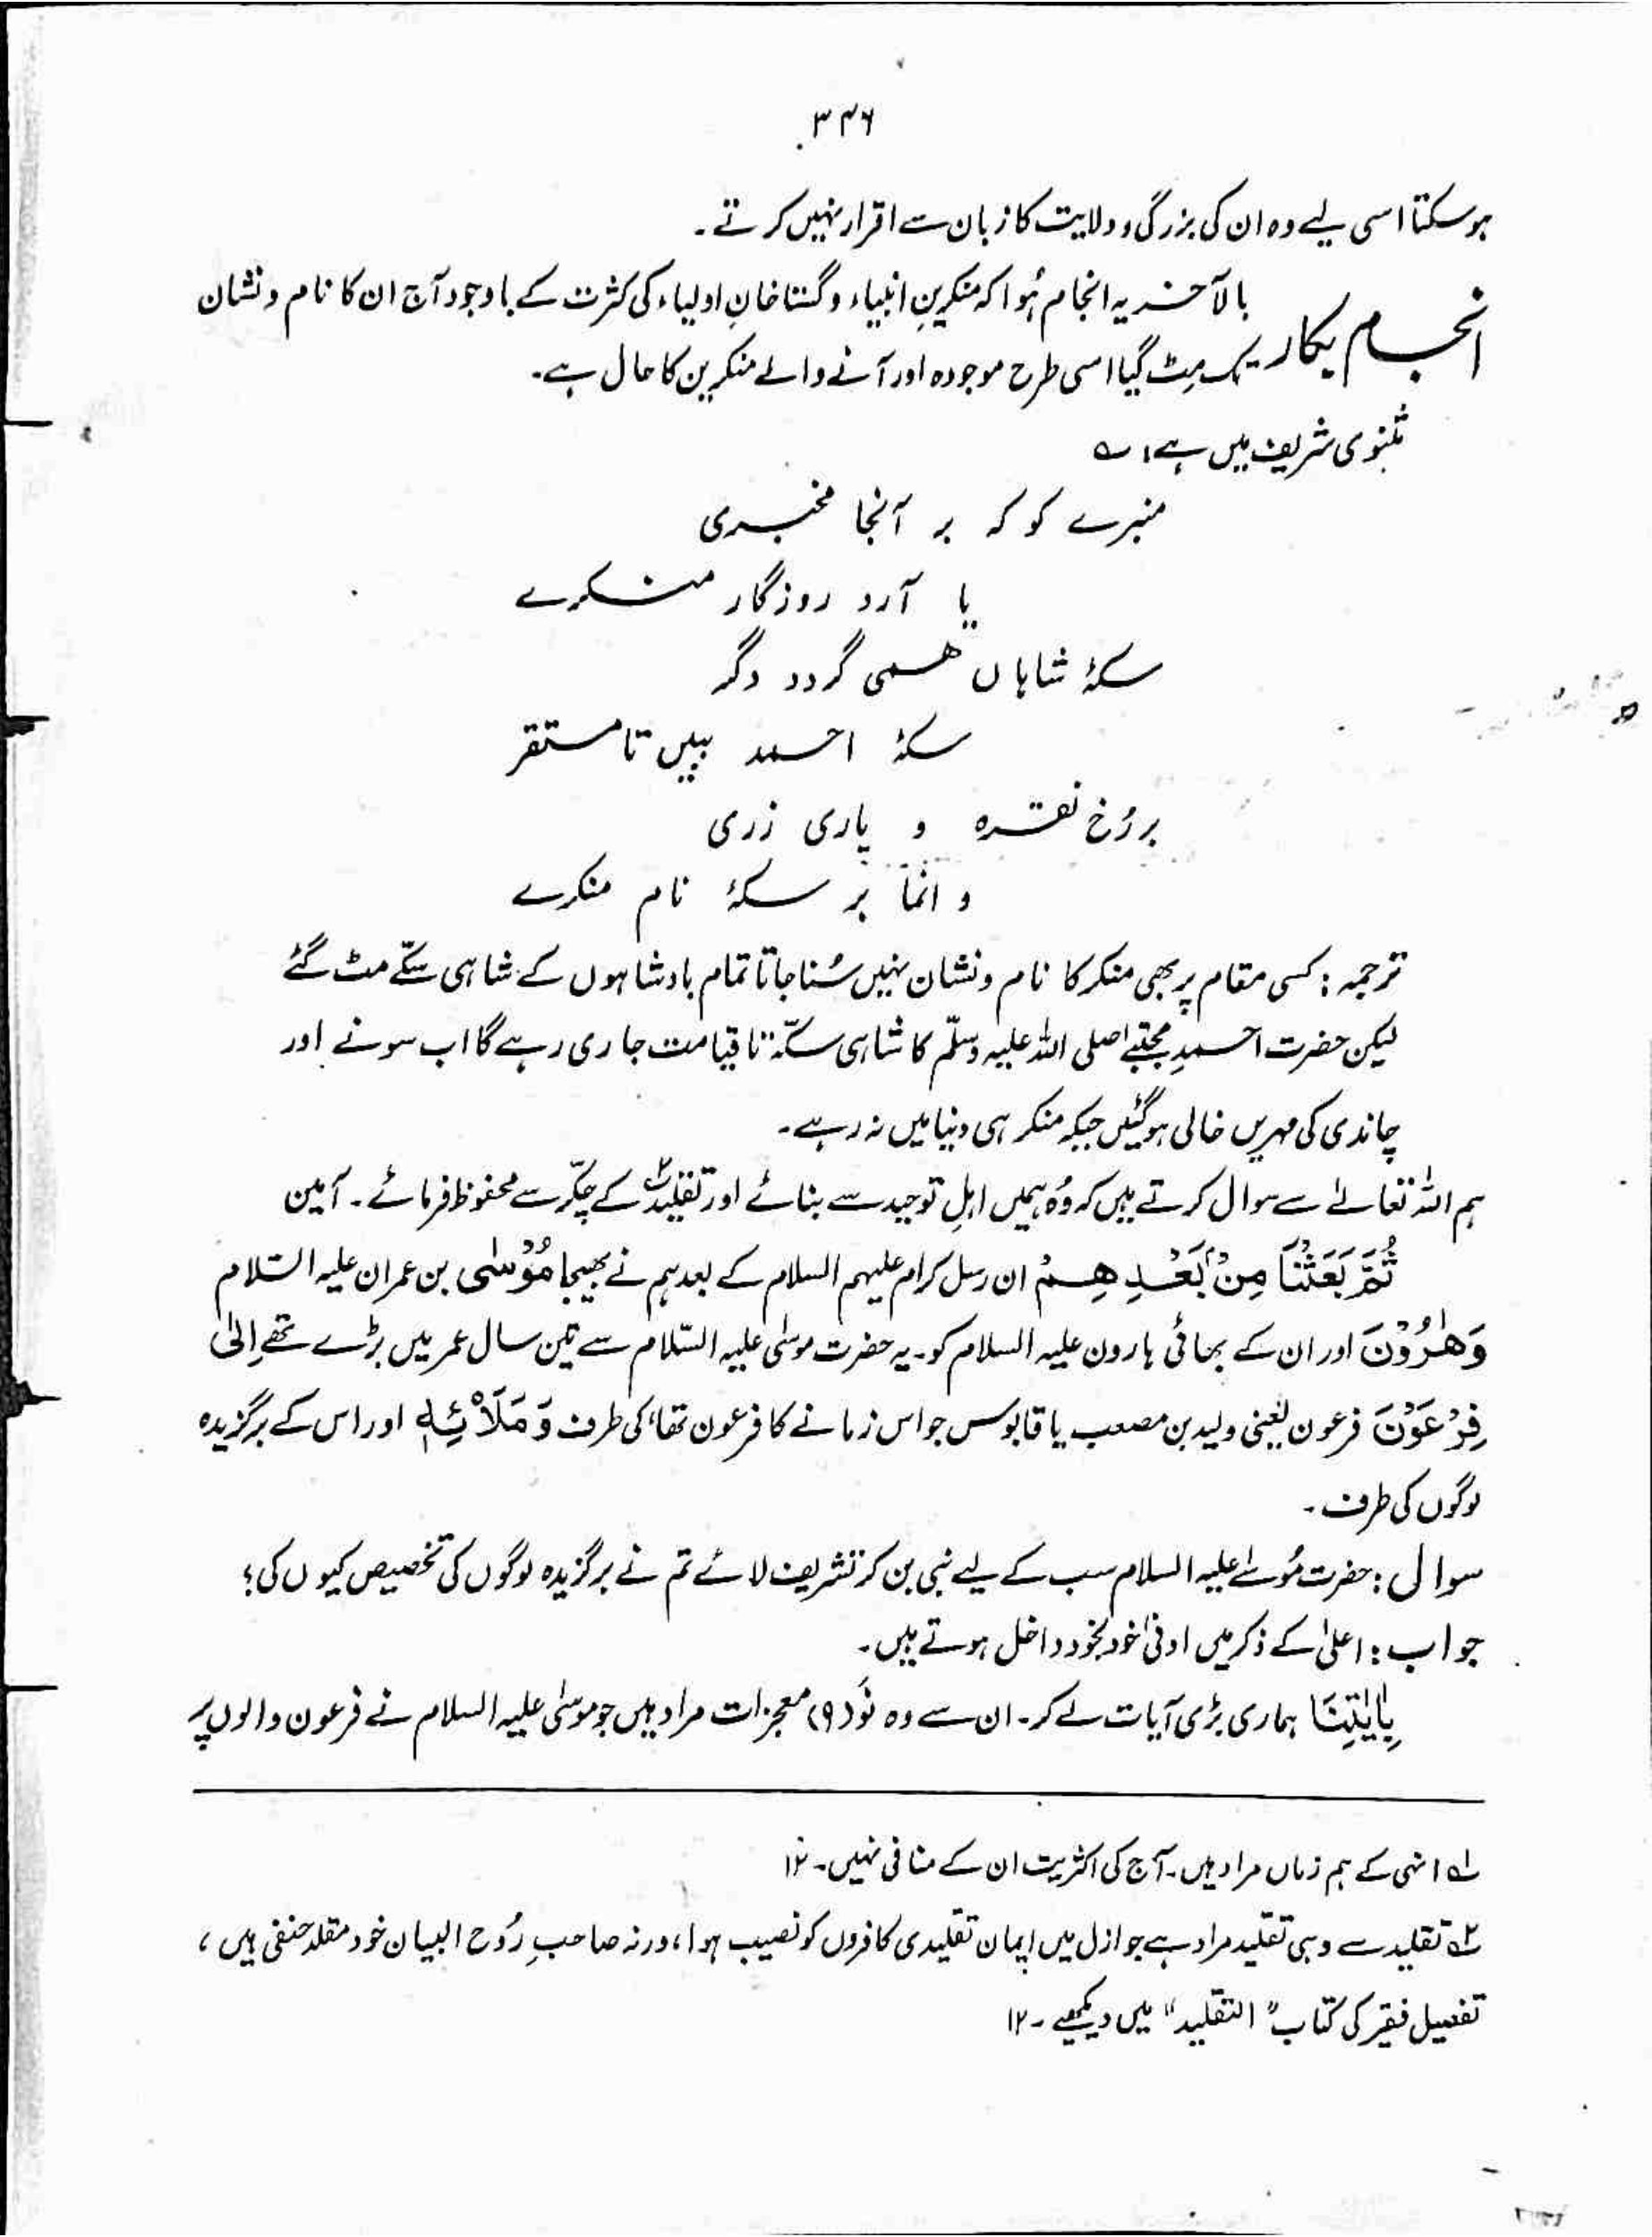 ۳۴۶
ہوسکتا اسی لیے وہ ان کی بزرگی و ولایت کا زبان سے اقرار نہیں کرتے۔
بالآخر یہ انجام ہُوا کہ منکرینِ انبیاء و گستاخانِ اولیاء کی کثرت کے باوجود آج ان کا نام و نشان
انجام یکار تک مِٹ گیا اسی طرح موجودہ اور آنے والے منکرین کا حال ہے۔
مثنوی شریف میں ہے: ؎
منبرے کو کہ بر آنجا مخبری
یا آرد روزگار منکرے
سکۂ شاہاں ھمی گردد دگر
سکۂ احمد ببیں تا مستقر
بر رُخ نقرہ و یاری زری
وانما بر سکۂ نام منکرے
ترجمہ: کسی مقام پر بھی منکر کا نام و نشان نہیں سُنا جاتا تمام بادشاہوں کے شاہی سکّے مٹ گئے
لیکن حضرت احمدِ مجتبےٰ صلی اللہ علیہ وسلّم کا شاہی سکّہ تا قیامت جاری رہے گا اب سونے اور
چاندی کی مہریں خالی ہوگئیں جبکہ منکر ہی دنیا میں نہ رہے۔
ہم اللہ تعالےٰ سے سوال کرتے ہیں کہ وُہ ہمیں اہلِ توحید سے بنائے اور تقلید۲؎ کے چکّر سے محفوظ فرمائے۔ آمین
ثُمَّ بَعَثْنَا مِنْۢ بَعْدِهِمْ ان رسل کرام علیہم السلام کے بعد ہم نے بھیجا مُوْسٰی بن عمران علیہ السّلام
وَهٰرُوْنَ اور ان کے بھائی ہارون علیہ السلام کو۔ یہ حضرت موسٰی علیہ السّلام سے تین سال عمر میں بڑے تھے اِلٰی
فِرْعَوْنَ فرعون یعنی ولید بن مصعب یا قابوس جو اس زمانے کا فرعون تھا، کی طرف وَمَلَاۡئِهٖ اور اس کے برگزیدہ
لوگوں کی طرف۔
سوال: حضرت مُوسےٰ علیہ السلام سب کے لیے نبی بن کر تشریف لائے تم نے برگزیدہ لوگوں کی تخصیص کیوں کی؟
جواب: اعلیٰ کے ذکر میں ادنیٰ خود بخود داخل ہوتے ہیں۔
بِاٰيٰتِنَا ہماری بڑی آیات لے کر۔ ان سے وہ نَو (۹) معجزات مراد ہیں جو موسٰی علیہ السلام نے فرعون والوں پر
۱؎ انہی کے ہم زماں مراد ہیں۔ آج کی اکثریت ان کے منافی نہیں۔ ۱۲
۲؎ تقلید سے وہی تقلید مراد ہے جو ازل میں ایمان تقلیدی کافروں کو نصیب ہوا، ورنہ صاحبِ رُوح البیان خود مقلد حنفی ہیں،
تفصیل فقیر کی کتاب "التقلید" میں دیکھیے۔ ۱۲